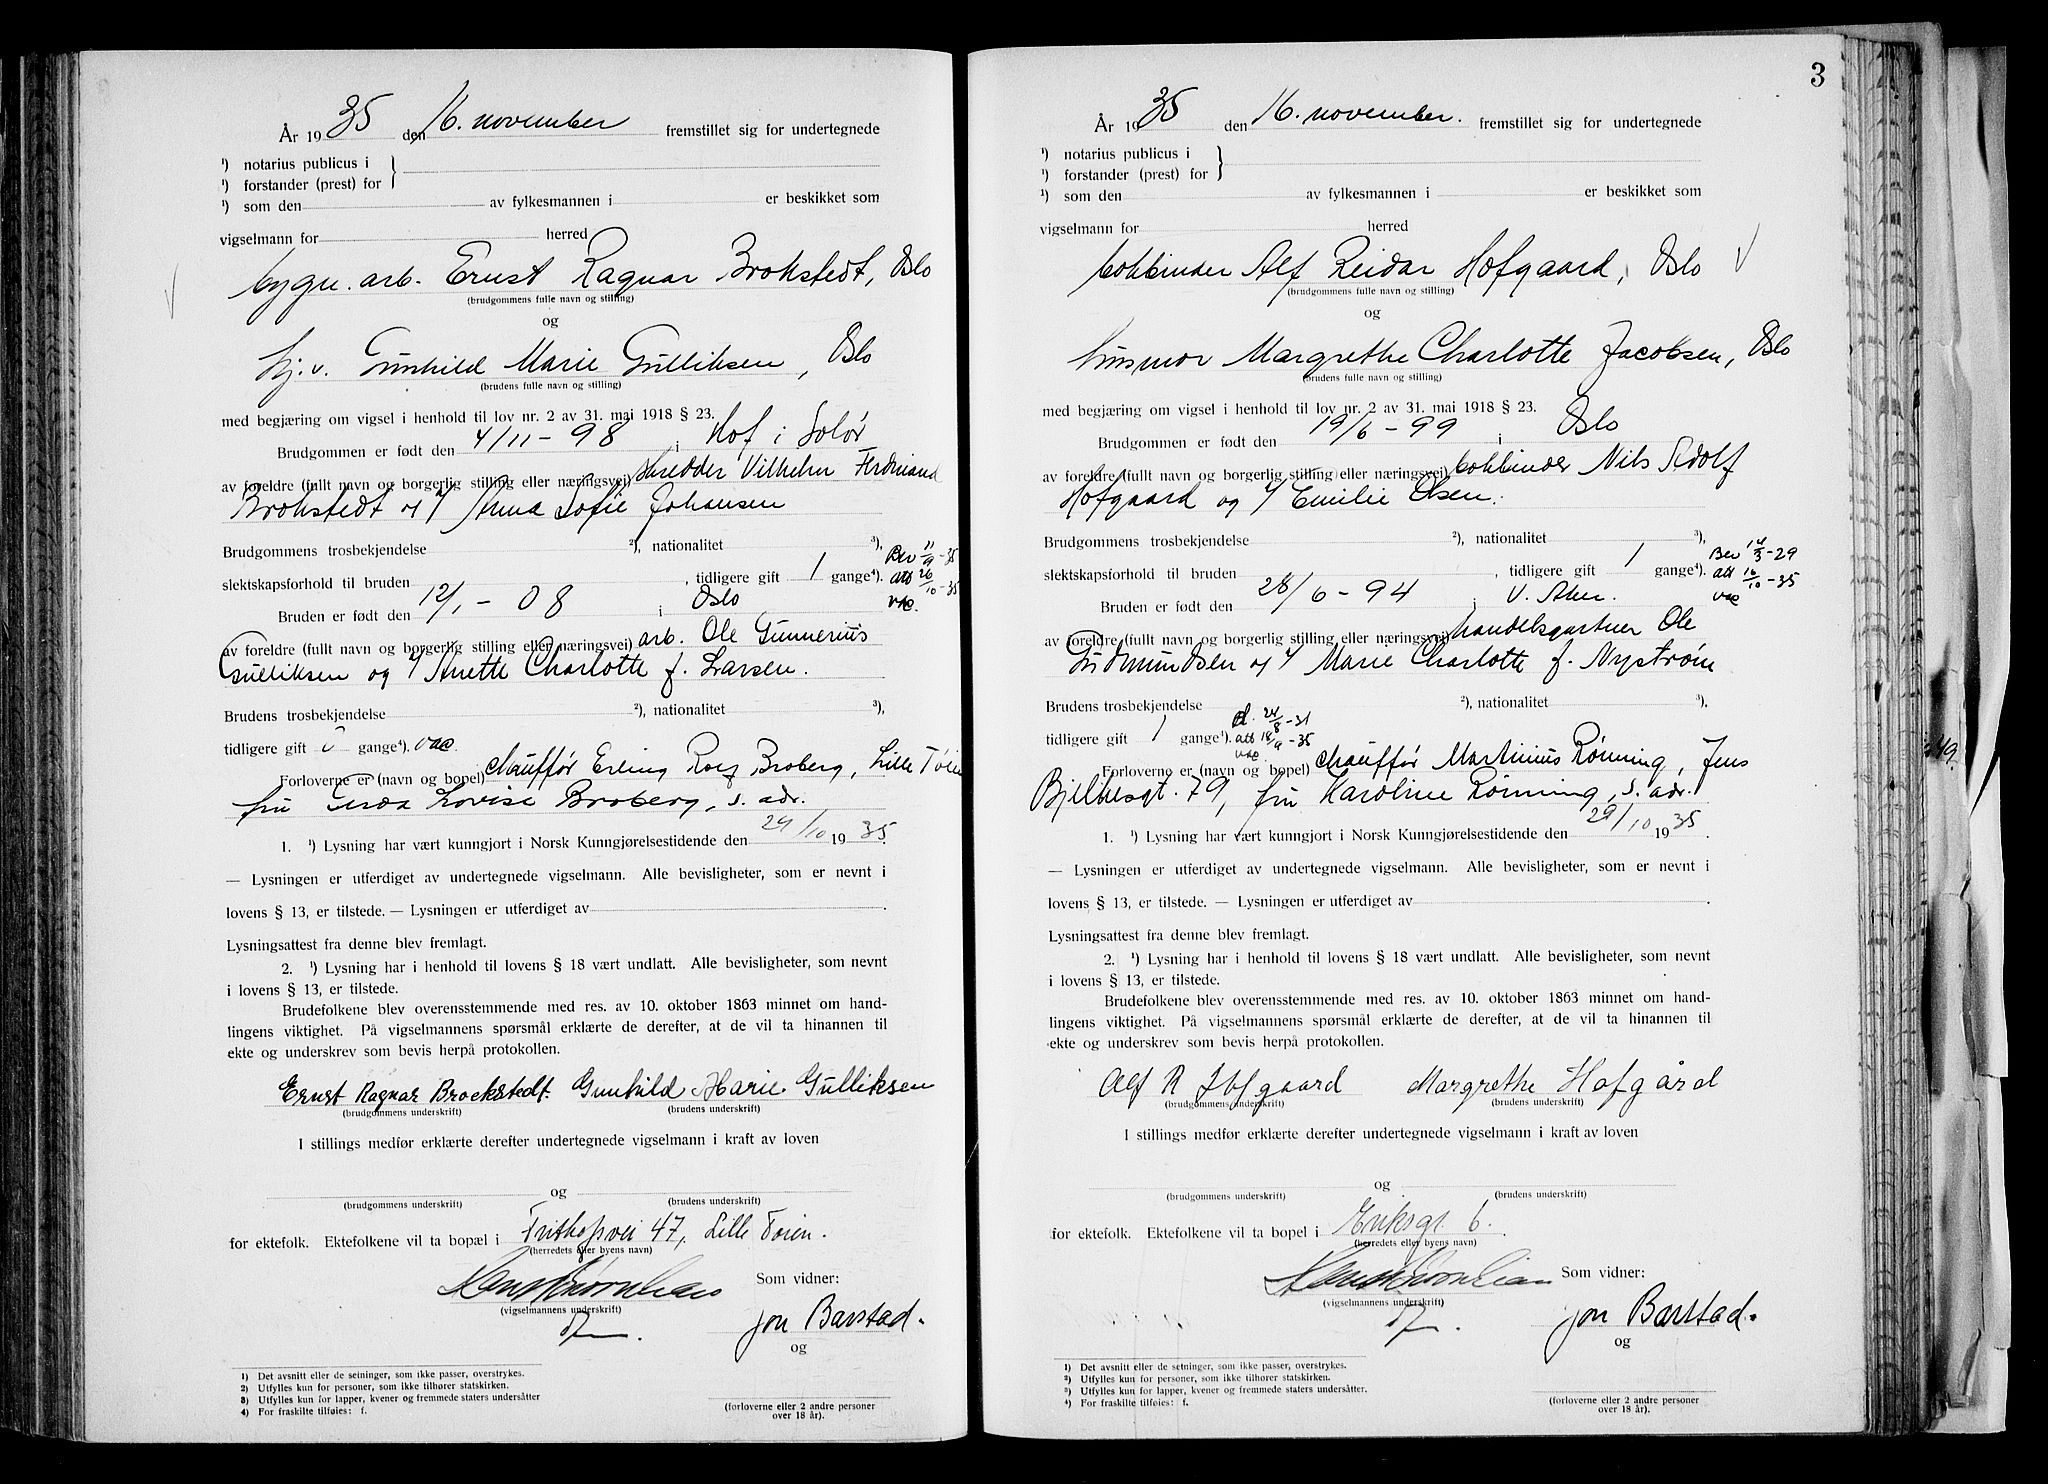 År 1935 den 16. november fremstillet sig for undertegnede
¹) notarius publicus i
¹) forstander (prest) for
¹) som den av fylkesmannen i er beskikket som
vigselmann for herred
bygn. arb. Ernst Ragnar Brokstedt, Oslo
(brudgommens fulle navn og stilling)
og
hj.v. Gunhild Marie Gulliksen, Oslo
(brudens fulle navn og stilling)
med begjæring om vigsel i henhold til lov nr. 2 av 31. mai 1918 § 23.
Brudgommen er født den 4/11-98 i Hof i Solør
av foreldre (fullt navn og borgerlig stilling eller næringsvei) skredder Vilhelm Ferdinand
Brokstedt og h Anna Sofie Johansen
Brudgommens trosbekjendelse ²), nationalitet ³),
slektskapsforhold til bruden , tidligere gift 1 gange⁴). Bev 11/9-35 att 26/10-35 vac.
Bruden er født den 12/1-08 i Oslo
av foreldre (fullt navn og borgerlig stilling eller næringsvei) arb. Ole Gunnerius
Gulliksen og h Anette Charlotte f. Larsen.
Brudens trosbekjendelse ²), nationalitet ³),
tidligere gift gange⁴). vac.
Forloverne er (navn og bopel) chauffør Erling Rolf Broberg, Lille Tøien
fru Lovise Broberg, s. adr.
1. ¹) Lysning har vært kunngjort i Norsk Kunngjørelsestidende den 24/10 1935.
— Lysningen er utferdiget av undertegnede vigselmann. Alle bevisligheter, som er nevnt i
lovens § 13, er tilstede. — Lysningen er utferdiget av
Lysningsattest fra denne blev fremlagt.
2. ¹) Lysning har i henhold til lovens § 18 vært undlatt. Alle bevisligheter, som nevnt
i lovens § 13, er tilstede.
Brudefolkene blev overensstemmende med res. av 10. oktober 1863 minnet om hand-
lingens viktighet. På vigselmannens spørsmål erklærte de derefter, at de vil ta hinannen til
ekte og underskrev som bevis herpå protokollen.
Ernst Ragnar Brockstedt. Gunhild Marie Gulliksen
(brudgommens underskrift) (brudens underskrift)
I stillings medfør erklærte derefter undertegnede vigselmann i kraft av loven
og
(brudgommens underskrift) (brudens underskrift)
for ektefolk. Ektefolkene vil ta bopæl i Frithjofsvei 47, Lille Tøien.
(herredets eller byens navn)
Som vidner:
(vigselmannens underskrift)
Jon Barstad.
og
1) Det avsnitt eller de setninger, som ikke passer, overstrykes.
2) Utfylles kun for personer, som ikke tilhører statskirken.
3) Utfylles kun for lapper, kvener og fremmede staters undersåtter
4) For fraskilte tilføies: f.
(forloverne eller 2 andre personer
over 18 år).
3
År 1935 den 16. november. fremstillet sig for undertegnede
¹) notarius publicus i
¹) forstander (prest) for
¹) som den av fylkesmannen i er beskikket som
vigselmann for herred
bokbinder Alf Reidar Hofgaard, Oslo
(brudgommens fulle navn og stilling)
og
husmor Margrethe Charlotte Jacobsen, Oslo
(brudens fulle navn og stilling)
med begjæring om vigsel i henhold til lov nr. 2 av 31. mai 1918 § 23.
Brudgommen er født den 19/6-99 i Oslo
av foreldre (fullt navn og borgerlig stilling eller næringsvei) bokbinder Nils Adolf
Hofgaard og h Emilie Olsen.
Brudgommens trosbekjendelse ²), nationalitet ³),
slektskapsforhold til bruden , tidligere gift 1 gange⁴). Bev 14/3-29 att 16/10-35 vac
Bruden er født den 28/6-94 i V. Aker.
av foreldre (fullt navn og borgerlig stilling eller næringsvei) handelsgartner Ole
Gudmundsen og h Marie Charlotte f. Nystrøm
Brudens trosbekjendelse ²), nationalitet ³),
tidligere gift 1 gange⁴). d. 24/8-31 att 18/9-35 vac.
Forloverne er (navn og bopel) chauffør Martinius Rønning, Jens
Bjelkesgt. 79, fru Karoline Rønning, s. adr.
1. ¹) Lysning har vært kunngjort i Norsk Kunngjørelsestidende den 29/10 1935.
— Lysningen er utferdiget av undertegnede vigselmann. Alle bevisligheter, som er nevnt i
lovens § 13, er tilstede. — Lysningen er utferdiget av
Lysningsattest fra denne blev fremlagt.
2. ¹) Lysning har i henhold til lovens § 18 vært undlatt. Alle bevisligheter, som nevnt
i lovens § 13, er tilstede.
Brudefolkene blev overensstemmende med res. av 10. oktober 1863 minnet om hand-
lingens viktighet. På vigselmannens spørsmål erklærte de derefter, at de vil ta hinannen til
ekte og underskrev som bevis herpå protokollen.
Alf R Hofgaard Margrethe Hofgård
(brudgommens underskrift) (brudens underskrift)
I stillings medfør erklærte derefter undertegnede vigselmann i kraft av loven
og
(brudgommens underskrift) (brudens underskrift)
for ektefolk. Ektefolkene vil ta bopel i Eriksgt. 6.
(herredets eller byens navn)
Som vidner:
(vigselmannens underskrift)
Jon Barstad.
og
1) Det avsnitt eller de setninger, som ikke passer, overstrykes.
2) Utfylles kun for personer, som ikke tilhører statskirken.
3) Utfylles kun for lapper, kvener og fremmede staters undersåtter.
4) For fraskilte tilføies: f.
(forloverne eller 2 andre personer
over 18 år).